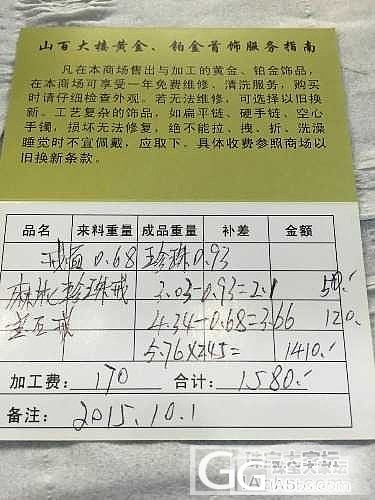 山百大楼黄金、铂金首饰服务指南
凡在本商场售出与加工的黄金、铂金饰品,
在本商场可享受一年免费维修、清洗服务,购买
时请仔细检查外观。若无法维修,可选择以旧换
新。工艺复杂的饰品,如扁平链、硬手链、空心
手镯,损坏无法修复,绝不能拉、拽、折、洗澡
睡觉时不宜佩戴,应取下。具体收费参照商场以
旧换新条款。
品名 来料重量 成品重量 补差 金额
戒面 0.68 珍珠 0.93
麻花珍珠戒 3.03-0.93=2.1 50.
蓝瓦戒 4.34-0.68=3.66 120.
5.76×245= 1410.
加工费: 170 合计: 1580.
备注: 2015.10.1